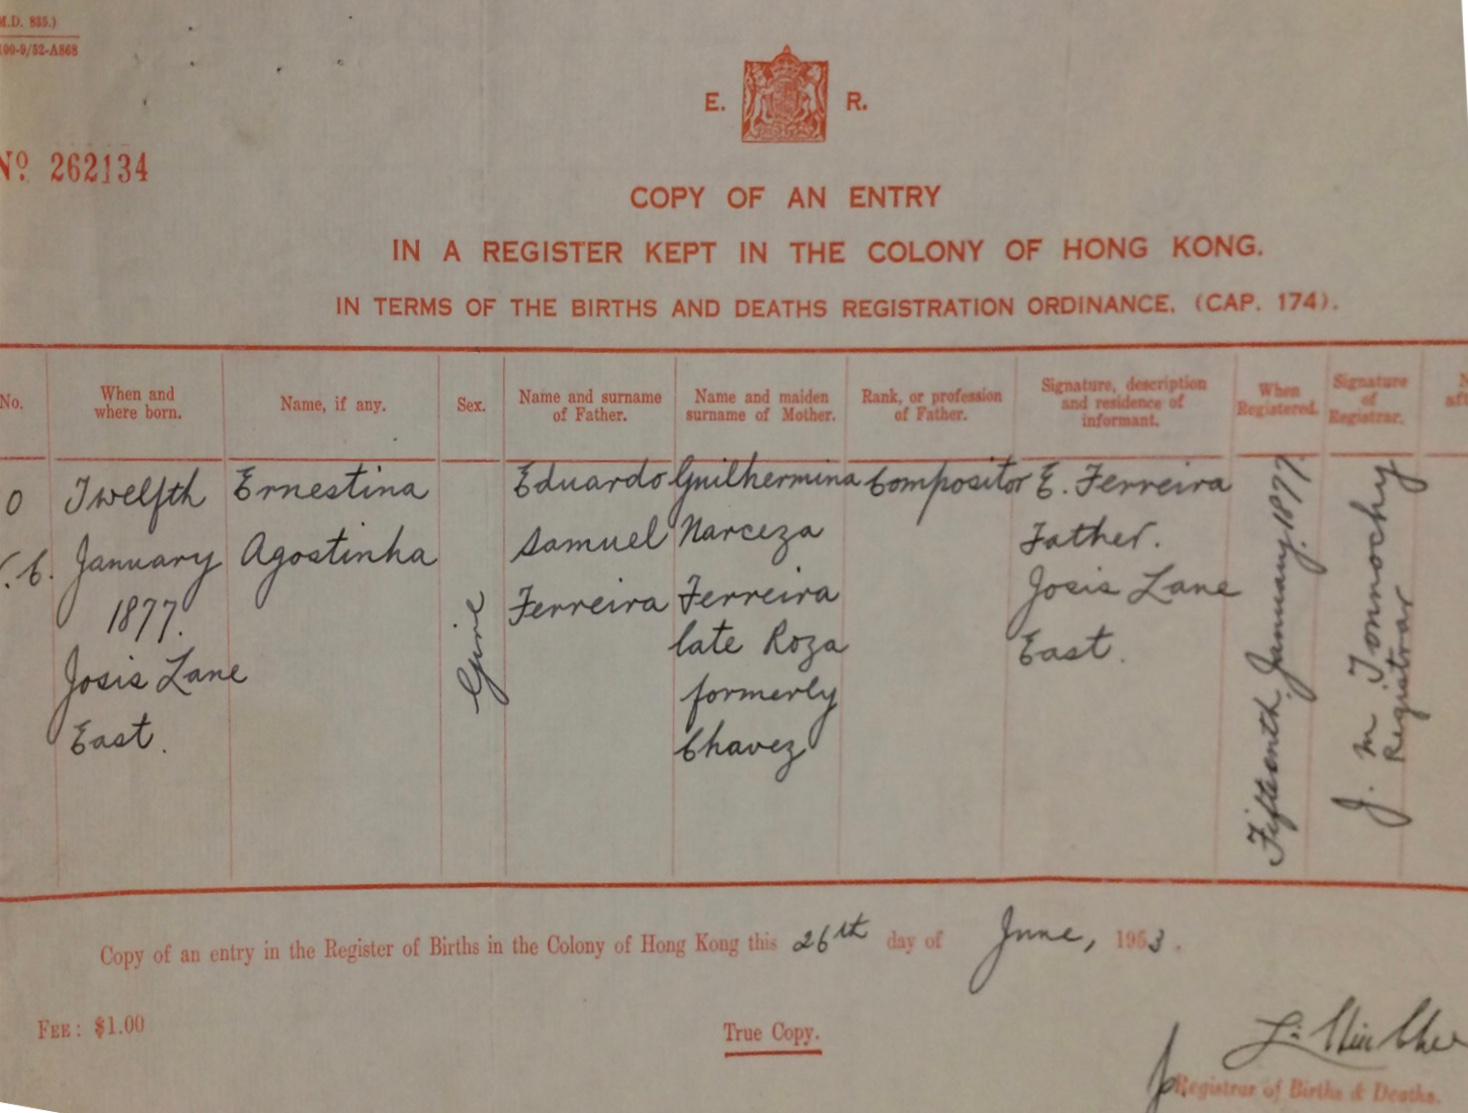 M.D. 835.)
100-9/52-A868
E. R.
Nº 262134
COPY OF AN ENTRY
IN A REGISTER KEPT IN THE COLONY OF HONG KONG.
IN TERMS OF THE BIRTHS AND DEATHS REGISTRATION ORDINANCE. (CAP. 174).
No.
When and
where born.
Name, if any.
Sex.
Name and surname
of Father.
Name and maiden
surname of Mother.
Rank, or profession
of Father.
Signature, description
and residence of
informant.
When
Registered.
Signature
of
Registrar.
0
Twelfth
January
1877.
Josis Lane
East.
Ernestina
Agostinha
Girl
Eduardo
Samuel
Ferreira
Guilhermina
Narceza
Ferreira
late Roza
formerly
Chavez
Compositor
E. Ferreira
Father.
Josis Lane
East.
Fifteenth January. 1877.
J. M Tonnochy
Registrar
Copy of an entry in the Register of Births in the Colony of Hong Kong this 26th day of June, 1953.
FEE: $1.00
True Copy.
Registrar of Births & Deaths.